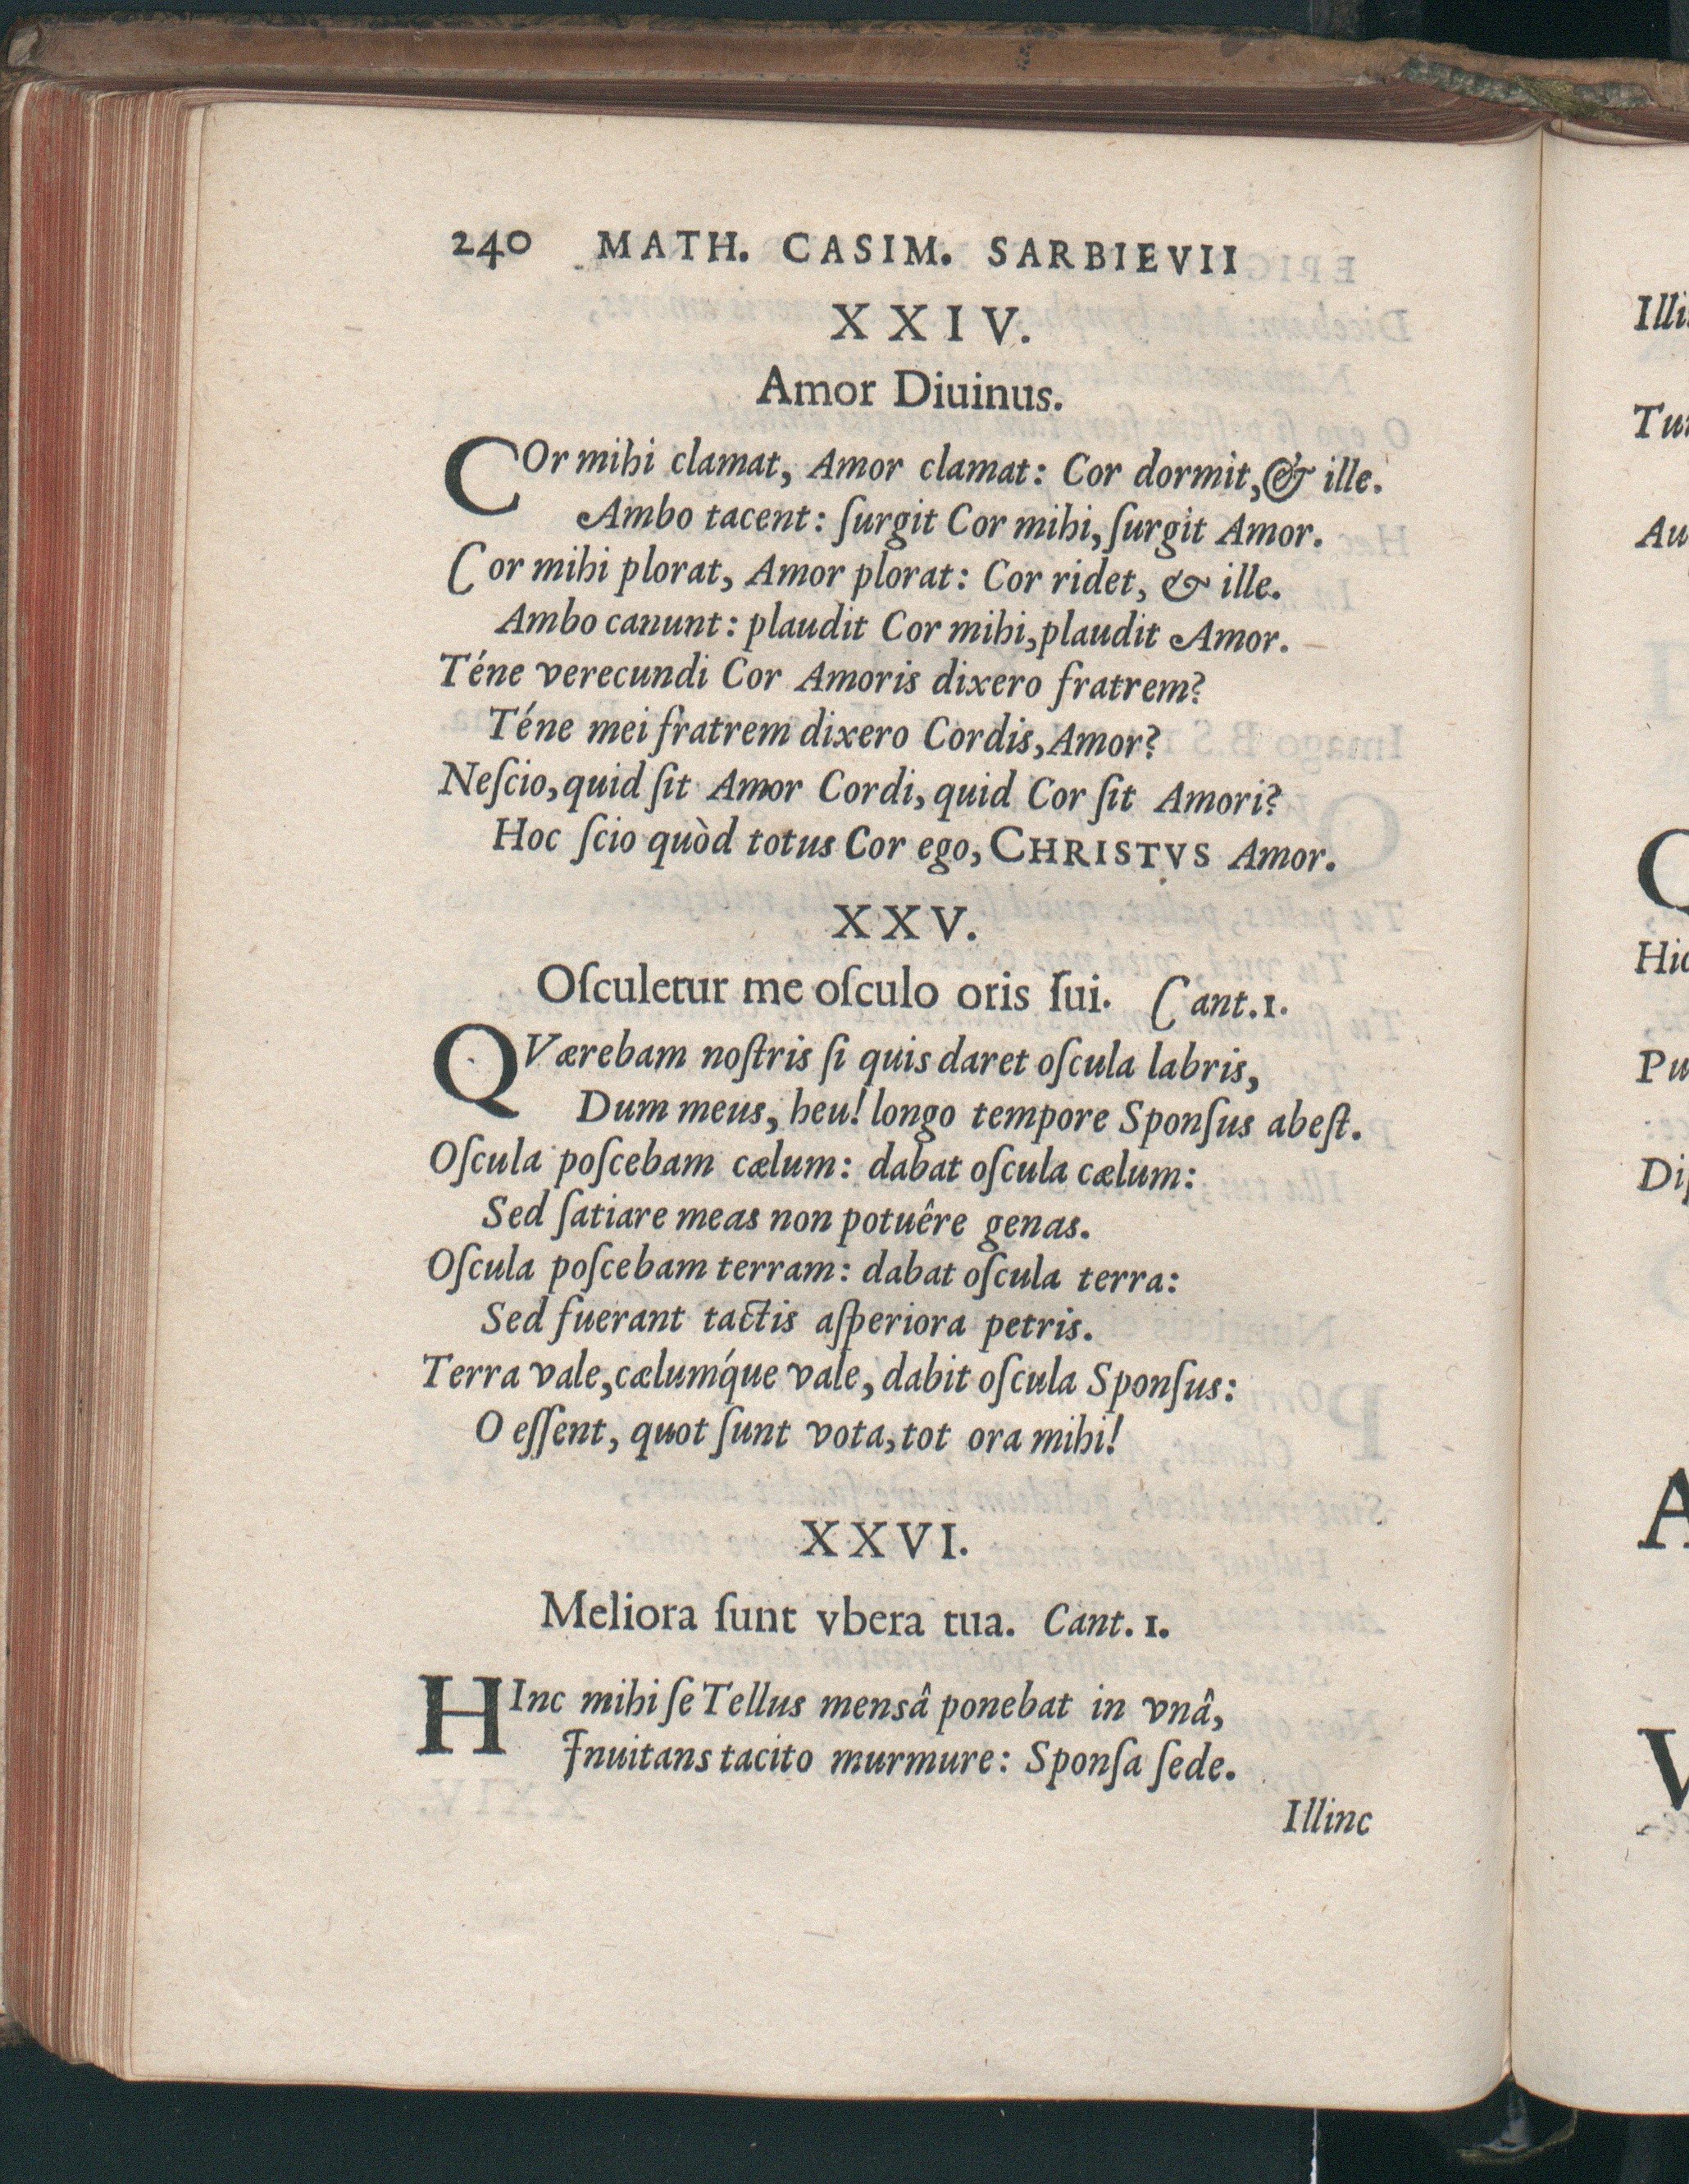 240 MATH. CASIM. SARBIEVII
XXIV.
Amor Diuinus.
COr mihi clamat, Amor clamat: Cor dormit, & ille.
Ambo tacent: ſurgit Cor mihi, ſurgit Amor.
Cor mihi plorat, Amor plorat: Cor ridet, & ille.
Ambo canunt: plaudit Cor mihi, plaudit Amor.
Téne verecundi Cor Amoris dixero fratrem?
Téne mei fratrem dixero Cordis, Amor?
Neſcio, quid ſit Amor Cordi, quid Cor ſit Amori?
Hoc ſcio quòd totus Cor ego, CHRISTVS Amor.
XXV.
Oſculetur me oſculo oris ſui. Cant. 1.
QVærebam noſtris ſi quis daret oſcula labris,
Dum meus, heu! longo tempore Sponſus abeſt.
Oſcula poſcebam cælum: dabat oſcula cælum:
Sed ſatiare meas non potuêre genas.
Oſcula poſcebam terram: dabat oſcula terra:
Sed fuerant tactis aſperiora petris.
Terra vale, cælumq́ue vale, dabit oſcula Sponſus:
O eſſent, quot ſunt vota, tot ora mihi!
XXVI.
Meliora ſunt vbera tua. Cant. 1.
HInc mihi ſe Tellus mensâ ponebat in vnâ,
Inuitans tacito murmure: Sponſa ſede.
Illinc